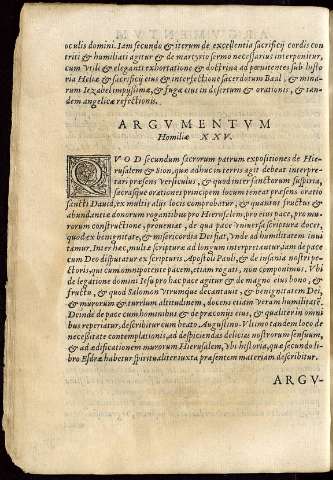 oculis domini. Iam secundo & iterum de excellentia sacrificij cordis con
triti & humiliati agitur & de martyrio sermo necessarius interponitur,
cum vtili & eleganti exhortatione & doctrina ad pœnitentes sub histo
ria Heliæ & sacrificij eius & interfectione sacerdotum Baal, & mina-
rum Iezabel impijssimæ, & fuga eius in desertum & orationis, & tan
dem angelicæ refectionis.
ARGVMENTVM
Homiliæ XXV.
QVOD secundum sacrorum patrum expositiones de Hie-
rusalem & Sion, quæ adhuc in terris agit debeat interpre-
tari præsens versiculus, & quod inter sanctorum suspiria,
sacrasque orationes præcipuum locum teneat præsens oratio
sancti Dauid, ex multis alijs locis comprobatur, & quantus fructus &
abundantiæ donorum rogantibus pro Hierusalem, pro eius pace, pro mu-
rorum constructione, proueniat, de qua pace vniuersa scriptura docet,
quod ex benignitate, & misericordia Dei fiat, vnde ad humilitatem inui
tamur. Inter hæc, multæ scripturæ ad longum interpretantur, iam de pace
cum Deo disputatur ex scripturis Apostoli Pauli, & de insania nostri pe-
ctoris, qui cum omnipotente pacem, etiam rogati, non componimus. Vbi
de legatione domini Iesu pro hac pace agitur & de magno eius bono, &
fructu, & quod Salomon vtrumque decantauit, & benignitatem Dei,
& murorum & turrium altitudinem, docens etiam veram humilitatē.
Deinde de pace cum hominibus & de præconijs eius, & qualiter in omni
bus reperiatur, describitur cum beato Augustino. Vltimo tandem loco de
necessitate contemplationis, ad despiciendas delicias nostrorum sensuum,
& ad ædificationem murorum Hierusalem, vbi historia, quæ secundo li-
bro Esdræ habetur spiritualiter iuxta præsentem materiam describitur.
ARGV-